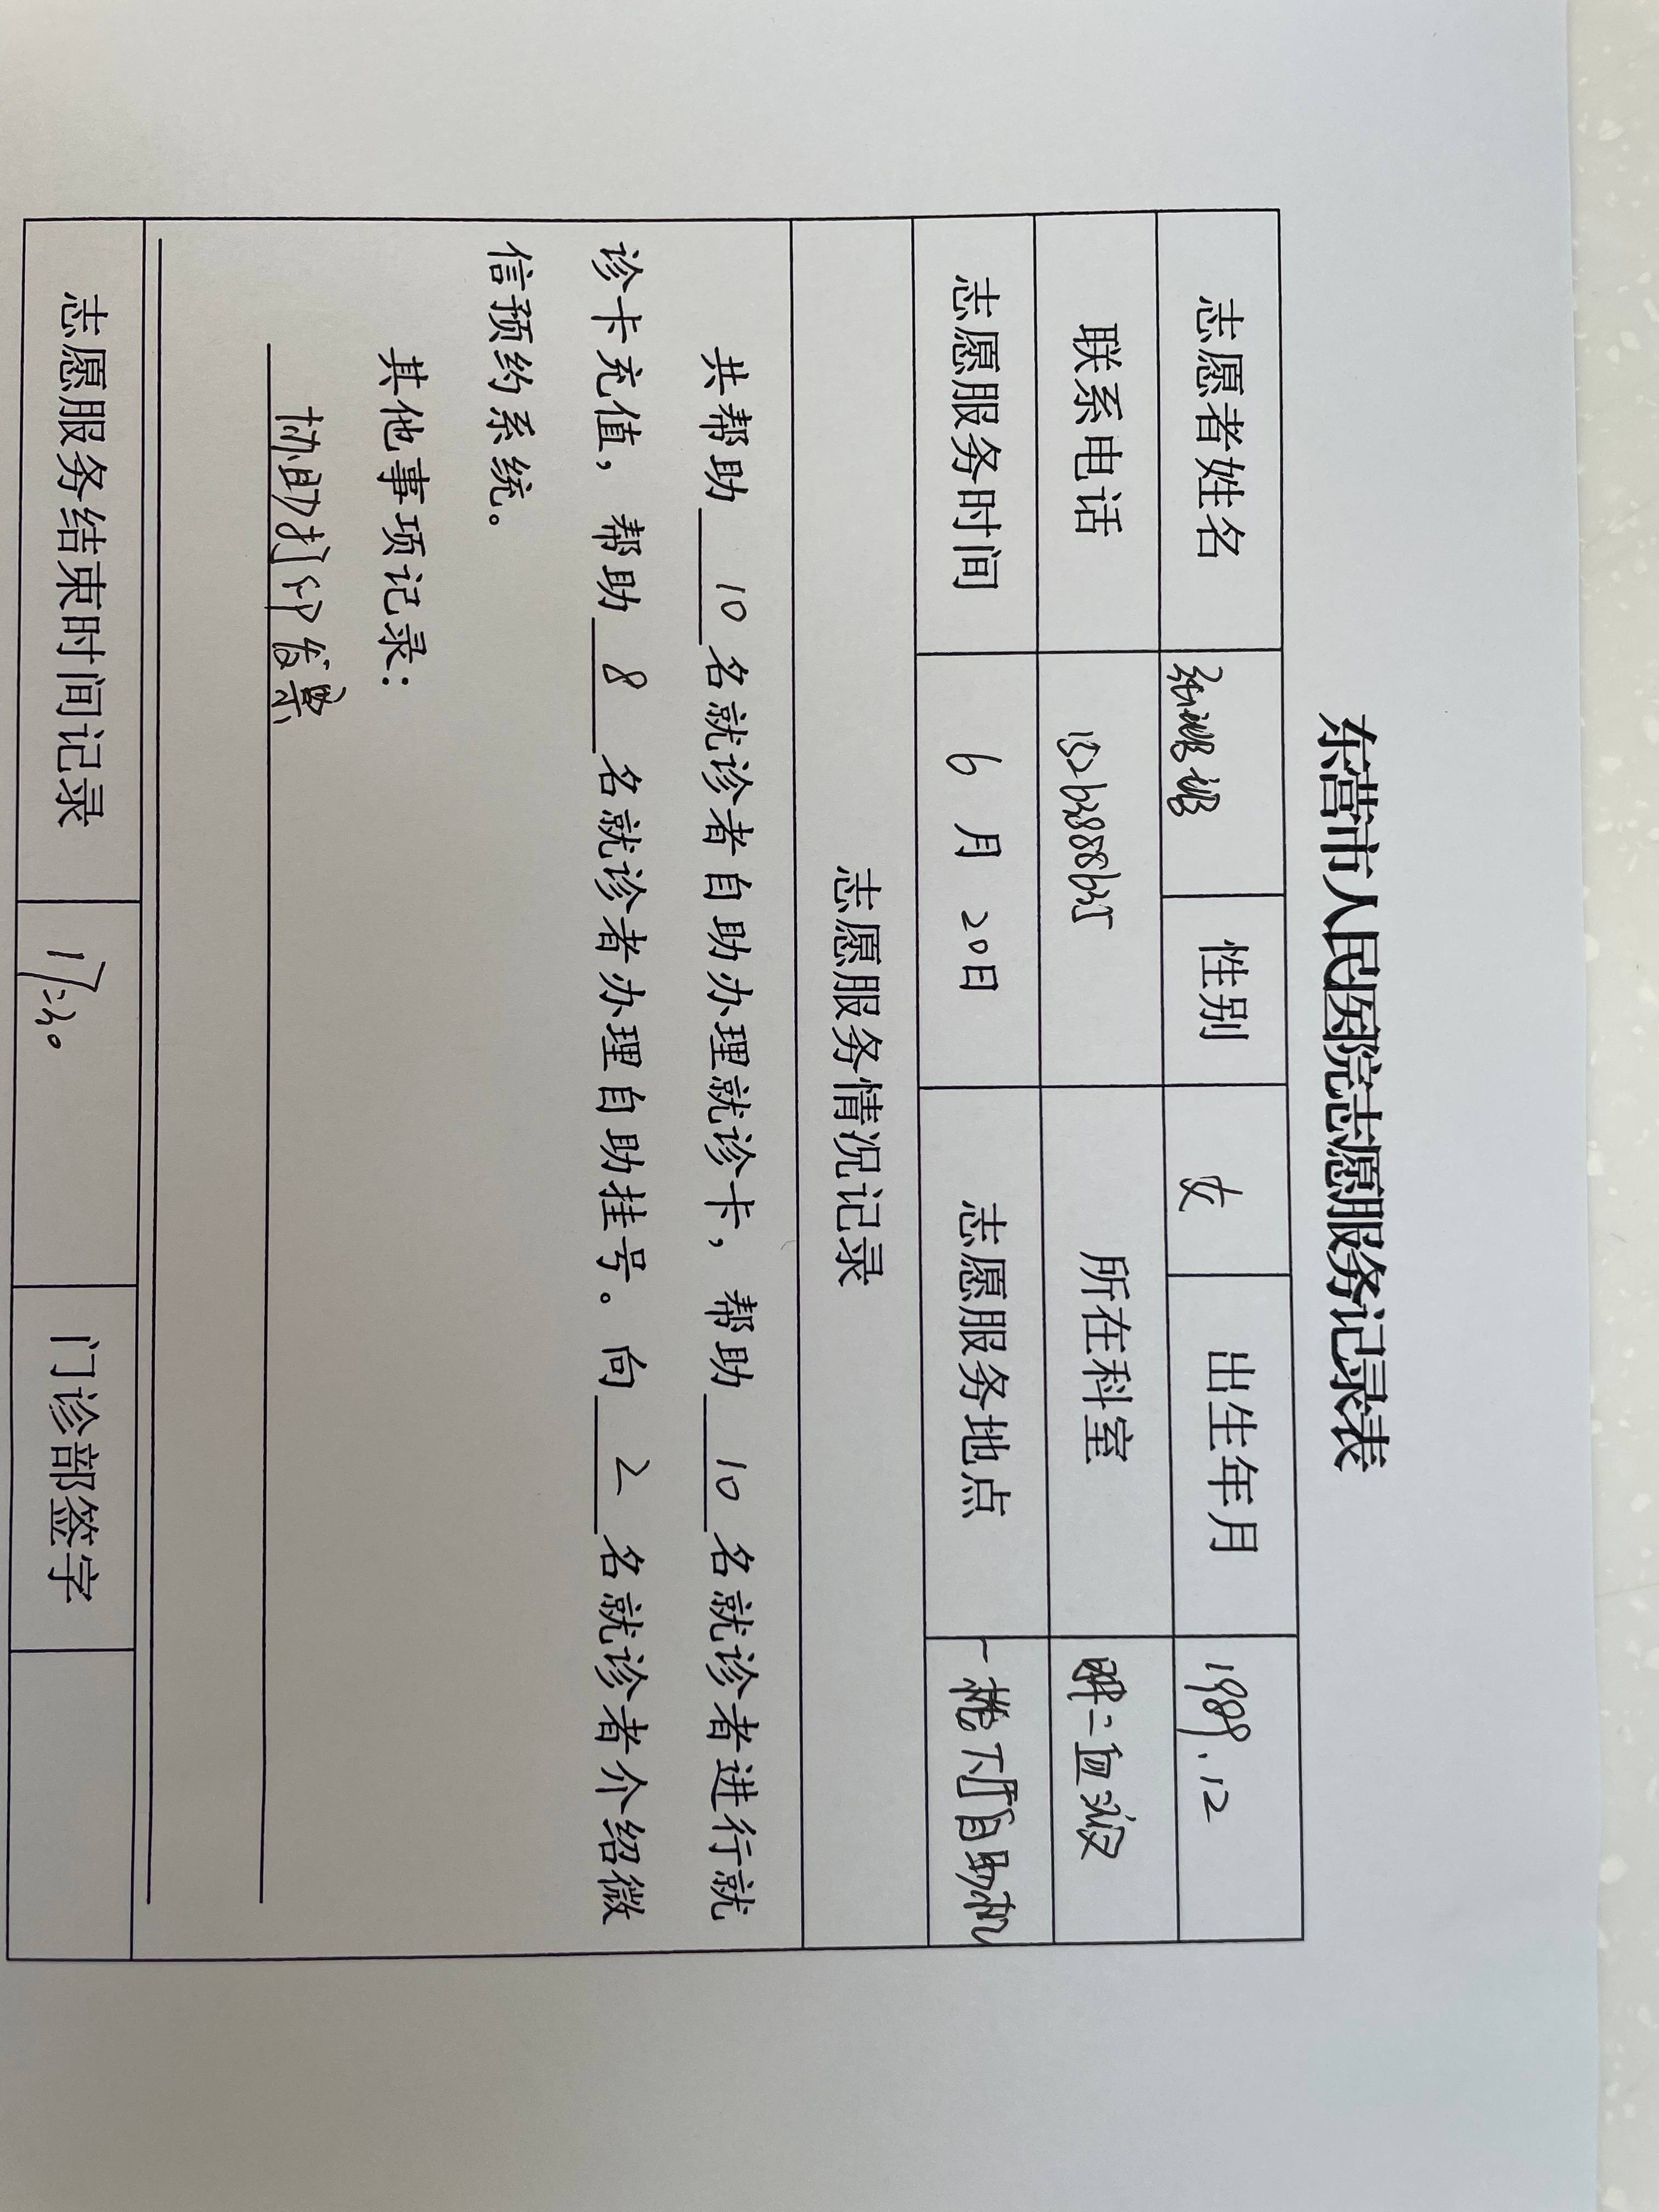 东营市人民医院志愿服务记录表
志愿者姓名 性别 女 出生年月 1989.12
联系电话 所在科室 肿二血液
志愿服务时间 6月20日 志愿服务地点 一楼大厅自助机
志愿服务情况记录
共帮助 10 名就诊者自助办理就诊卡，帮助 10 名就诊者进行就
诊卡充值，帮助 8 名就诊者办理自助挂号。向 2 名就诊者介绍微
信预约系统。
其他事项记录：
协助打印发票
志愿服务结束时间记录 17:30 门诊部签字